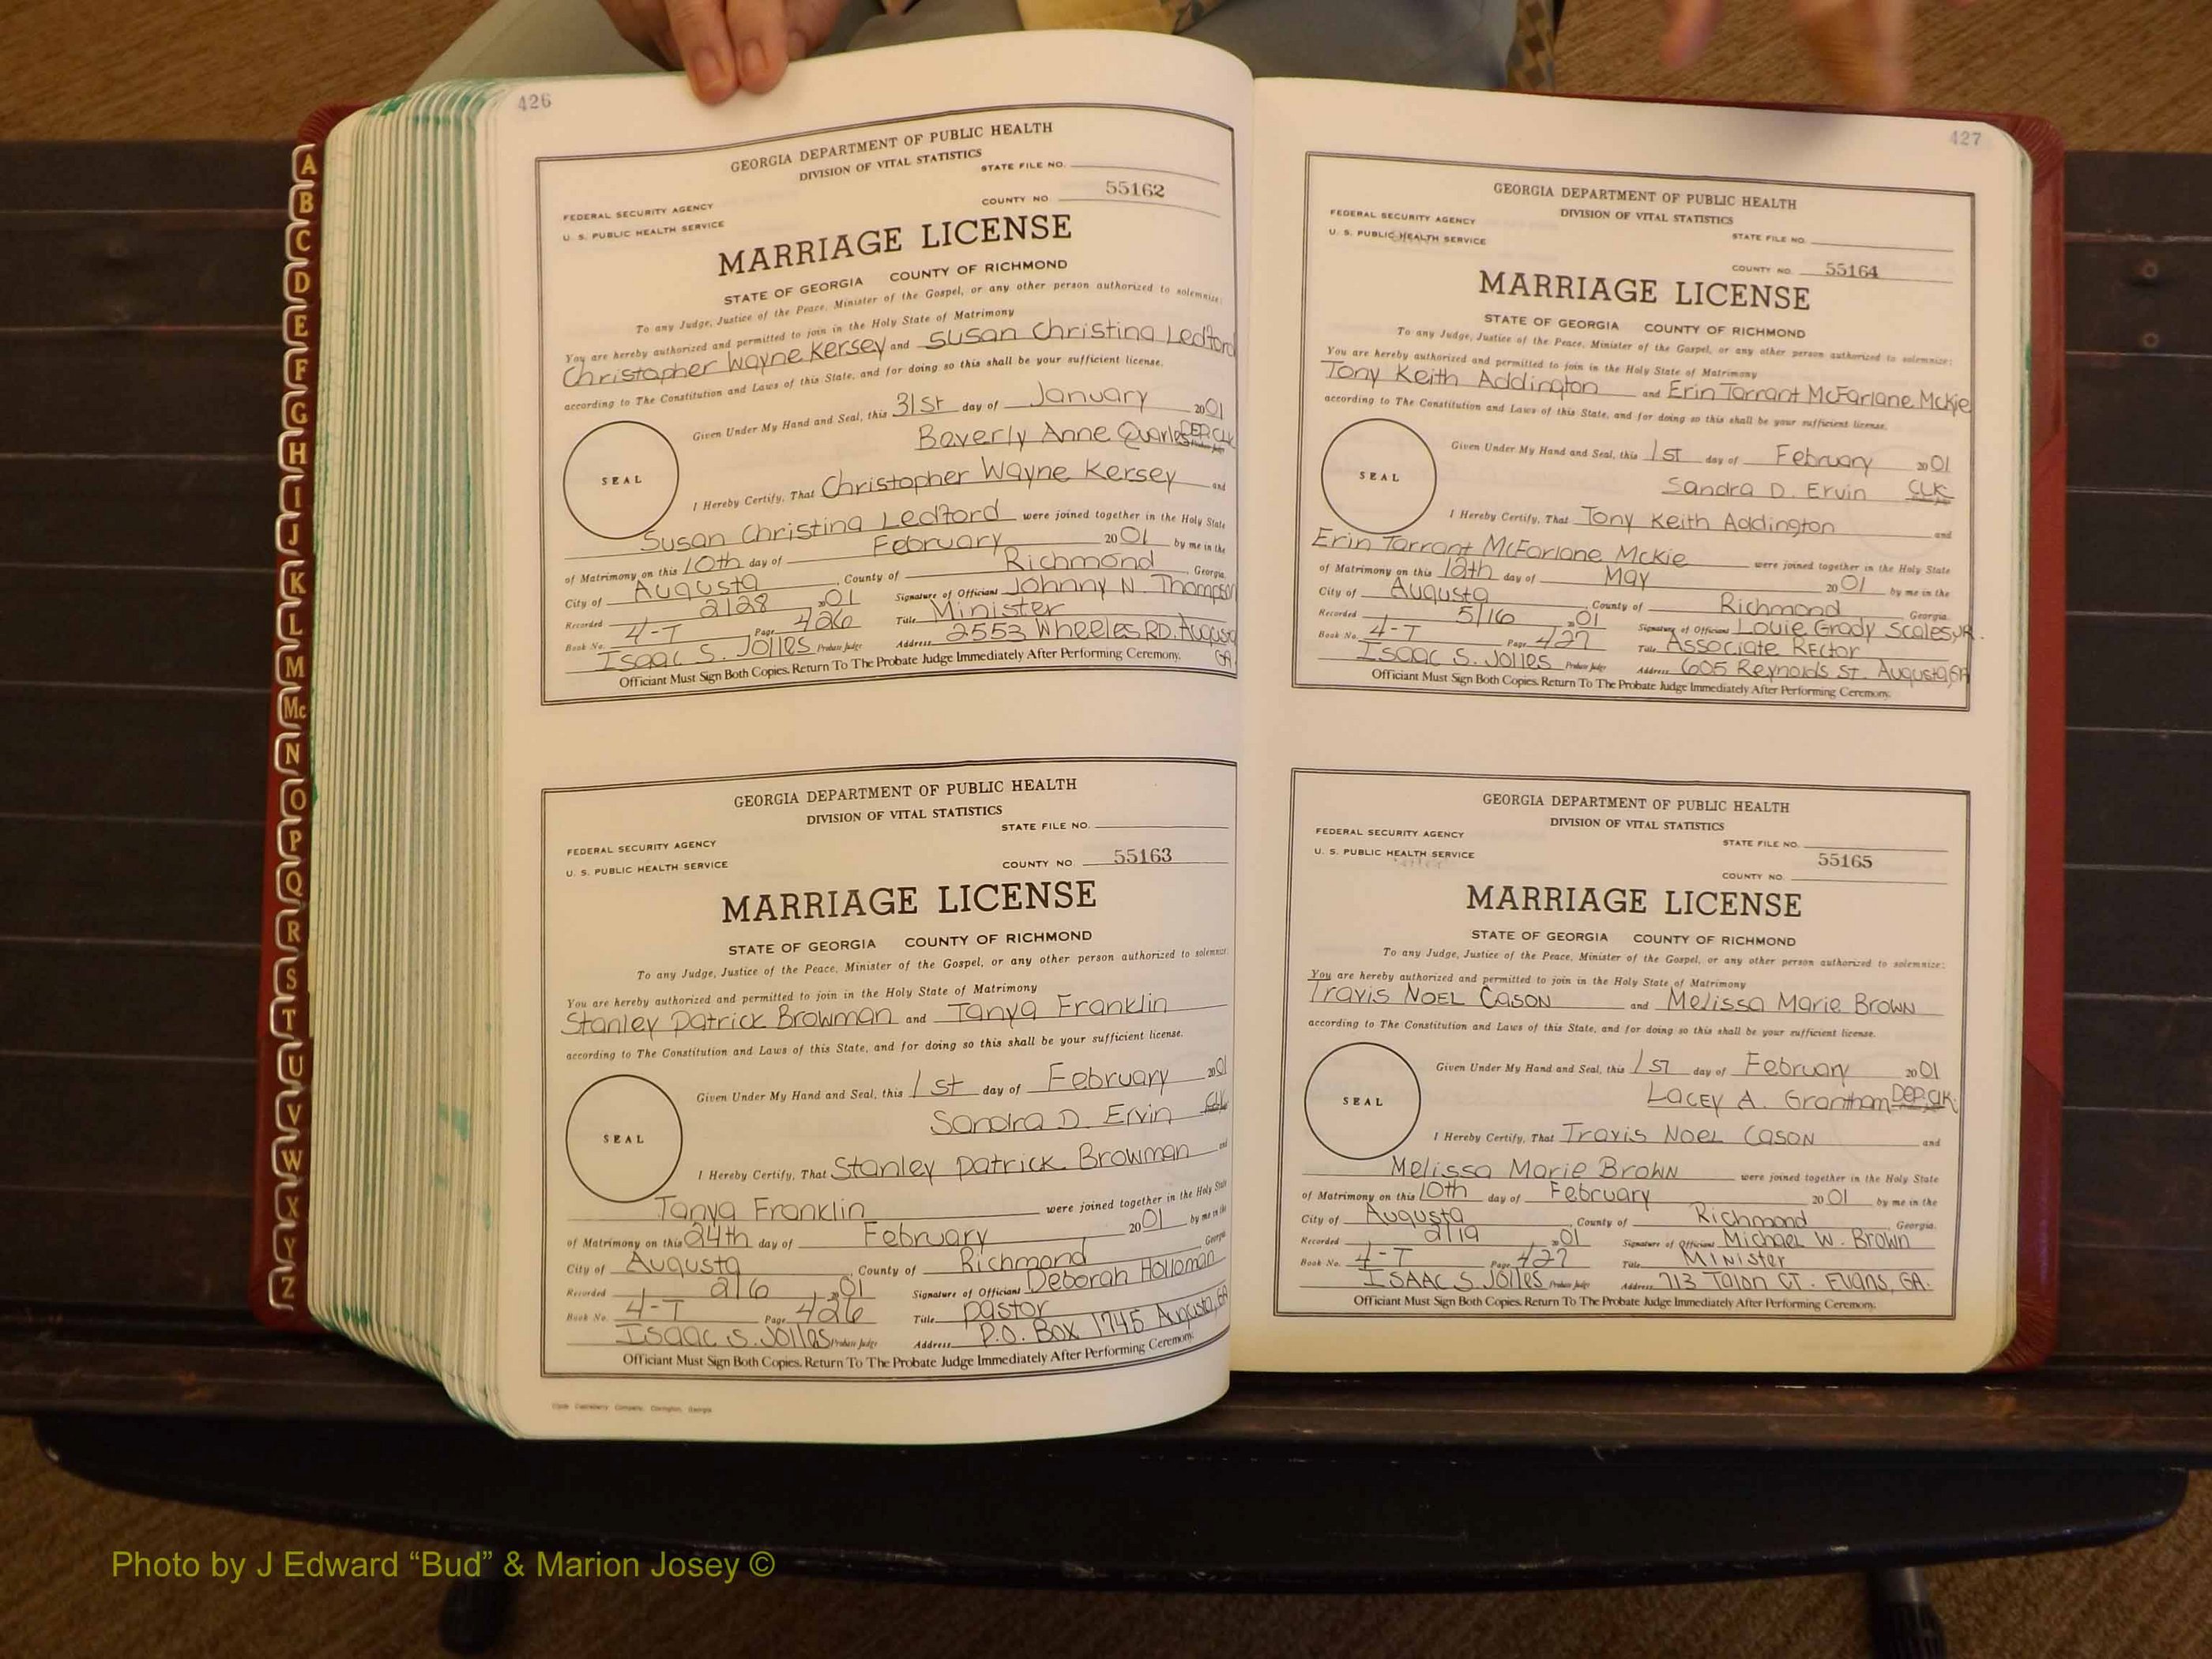 426
GEORGIA DEPARTMENT OF PUBLIC HEALTH
DIVISION OF VITAL STATISTICS
STATE FILE NO.
FEDERAL SECURITY AGENCY
U. S. PUBLIC HEALTH SERVICE
COUNTY NO 55162
MARRIAGE LICENSE
STATE OF GEORGIA COUNTY OF RICHMOND
To any Judge, Justice of the Peace, Minister of the Gospel, or any other person authorized to solemnize:
You are hereby authorized and permitted to join in the Holy State of Matrimony
Christopher Wayne Kersey and Susan Christina Ledford
according to The Constitution and Laws of this State, and for doing so this shall be your sufficient license.
Given Under My Hand and Seal, this 31st day of January 2001
Beverly Anne Quarles DEP. CLK
SEAL
I Hereby Certify, That Christopher Wayne Kersey and
Susan Christina Ledford were joined together in the Holy State
of Matrimony on this 10th day of February 2001 by me in the
City of Augusta, County of Richmond, Georgia.
Recorded 2/28 2001 Signature of Officiant Johnny N. Thompson
Book No. 4-T Page 426 Title Minister
Isaac S. Jolles Probate Judge Address 2553 Wheeles RD. Augusta GA
Officiant Must Sign Both Copies. Return To The Probate Judge Immediately After Performing Ceremony.
GEORGIA DEPARTMENT OF PUBLIC HEALTH
DIVISION OF VITAL STATISTICS
STATE FILE NO.
FEDERAL SECURITY AGENCY
U. S. PUBLIC HEALTH SERVICE
COUNTY NO 55163
MARRIAGE LICENSE
STATE OF GEORGIA COUNTY OF RICHMOND
To any Judge, Justice of the Peace, Minister of the Gospel, or any other person authorized to solemnize:
You are hereby authorized and permitted to join in the Holy State of Matrimony
Stanley Patrick Browman and Tanya Franklin
according to The Constitution and Laws of this State, and for doing so this shall be your sufficient license.
Given Under My Hand and Seal, this 1st day of February 2001
Sandra D. Ervin CLK
SEAL
I Hereby Certify, That Stanley Patrick Browman and
Tanya Franklin were joined together in the Holy State
of Matrimony on this 24th day of February 2001 by me in the
City of Augusta, County of Richmond Georgia
Recorded 2/6 2001 Signature of Officiant Deborah Holloman
Book No. 4-T Page 426 Title Pastor
Isaac S. Jolles Probate Judge Address P.O. Box 1745 Augusta, GA
Officiant Must Sign Both Copies. Return To The Probate Judge Immediately After Performing Ceremony.
427
GEORGIA DEPARTMENT OF PUBLIC HEALTH
DIVISION OF VITAL STATISTICS
FEDERAL SECURITY AGENCY
U. S. PUBLIC HEALTH SERVICE
STATE FILE NO.
COUNTY NO. 55164
MARRIAGE LICENSE
STATE OF GEORGIA COUNTY OF RICHMOND
To any Judge, Justice of the Peace, Minister of the Gospel, or any other person authorized to solemnize:
You are hereby authorized and permitted to join in the Holy State of Matrimony
Tony Keith Addington and Erin Tarrant McFarlane McKie
according to The Constitution and Laws of this State, and for doing so this shall be your sufficient license.
Given Under My Hand and Seal, this 1st day of February 2001
Sandra D. Ervin CLK
SEAL
I Hereby Certify, That Tony Keith Addington and
Erin Tarrant McFarlane McKie were joined together in the Holy State
of Matrimony on this 12th day of May 2001 by me in the
City of Augusta County of Richmond Georgia.
Recorded 5/16 2001 Signature of Officiant Louie Grady Scales, JR.
Book No. 4-T Page 427 Title Associate REctor
Isaac S. Jolles Probate Judge Address 605 Reynolds St. Augusta, GA
Officiant Must Sign Both Copies. Return To The Probate Judge Immediately After Performing Ceremony.
GEORGIA DEPARTMENT OF PUBLIC HEALTH
DIVISION OF VITAL STATISTICS
FEDERAL SECURITY AGENCY
U. S. PUBLIC HEALTH SERVICE
STATE FILE NO.
55165
COUNTY NO.
MARRIAGE LICENSE
STATE OF GEORGIA COUNTY OF RICHMOND
To any Judge, Justice of the Peace, Minister of the Gospel, or any other person authorized to solemnize:
You are hereby authorized and permitted to join in the Holy State of Matrimony
Travis NOEL CASON and Melissa Marie BROWN
according to The Constitution and Laws of this State, and for doing so this shall be your sufficient license.
Given Under My Hand and Seal, this 1st day of February 2001
LACEY A. Grantham DEP. CLK.
SEAL
I Hereby Certify, That Travis NOEL CASON and
Melissa Marie BROWN were joined together in the Holy State
of Matrimony on this 10th day of February 2001 by me in the
City of Augusta, County of Richmond Georgia.
Recorded 2/19 2001 Signature of Officiant Michael W. Brown
Book No. 4-T Page 427 Title Minister
ISAAC S. Jolles Probate Judge Address 713 Talon CT. Evans, GA.
Officiant Must Sign Both Copies. Return To The Probate Judge Immediately After Performing Ceremony.
A
B
C
D
E
F
G
H
I
J
K
L
M
Mc
N
O
P
Q
R
S
T
U
V
W
X
Y
Z
Photo by J Edward “Bud” & Marion Josey ©